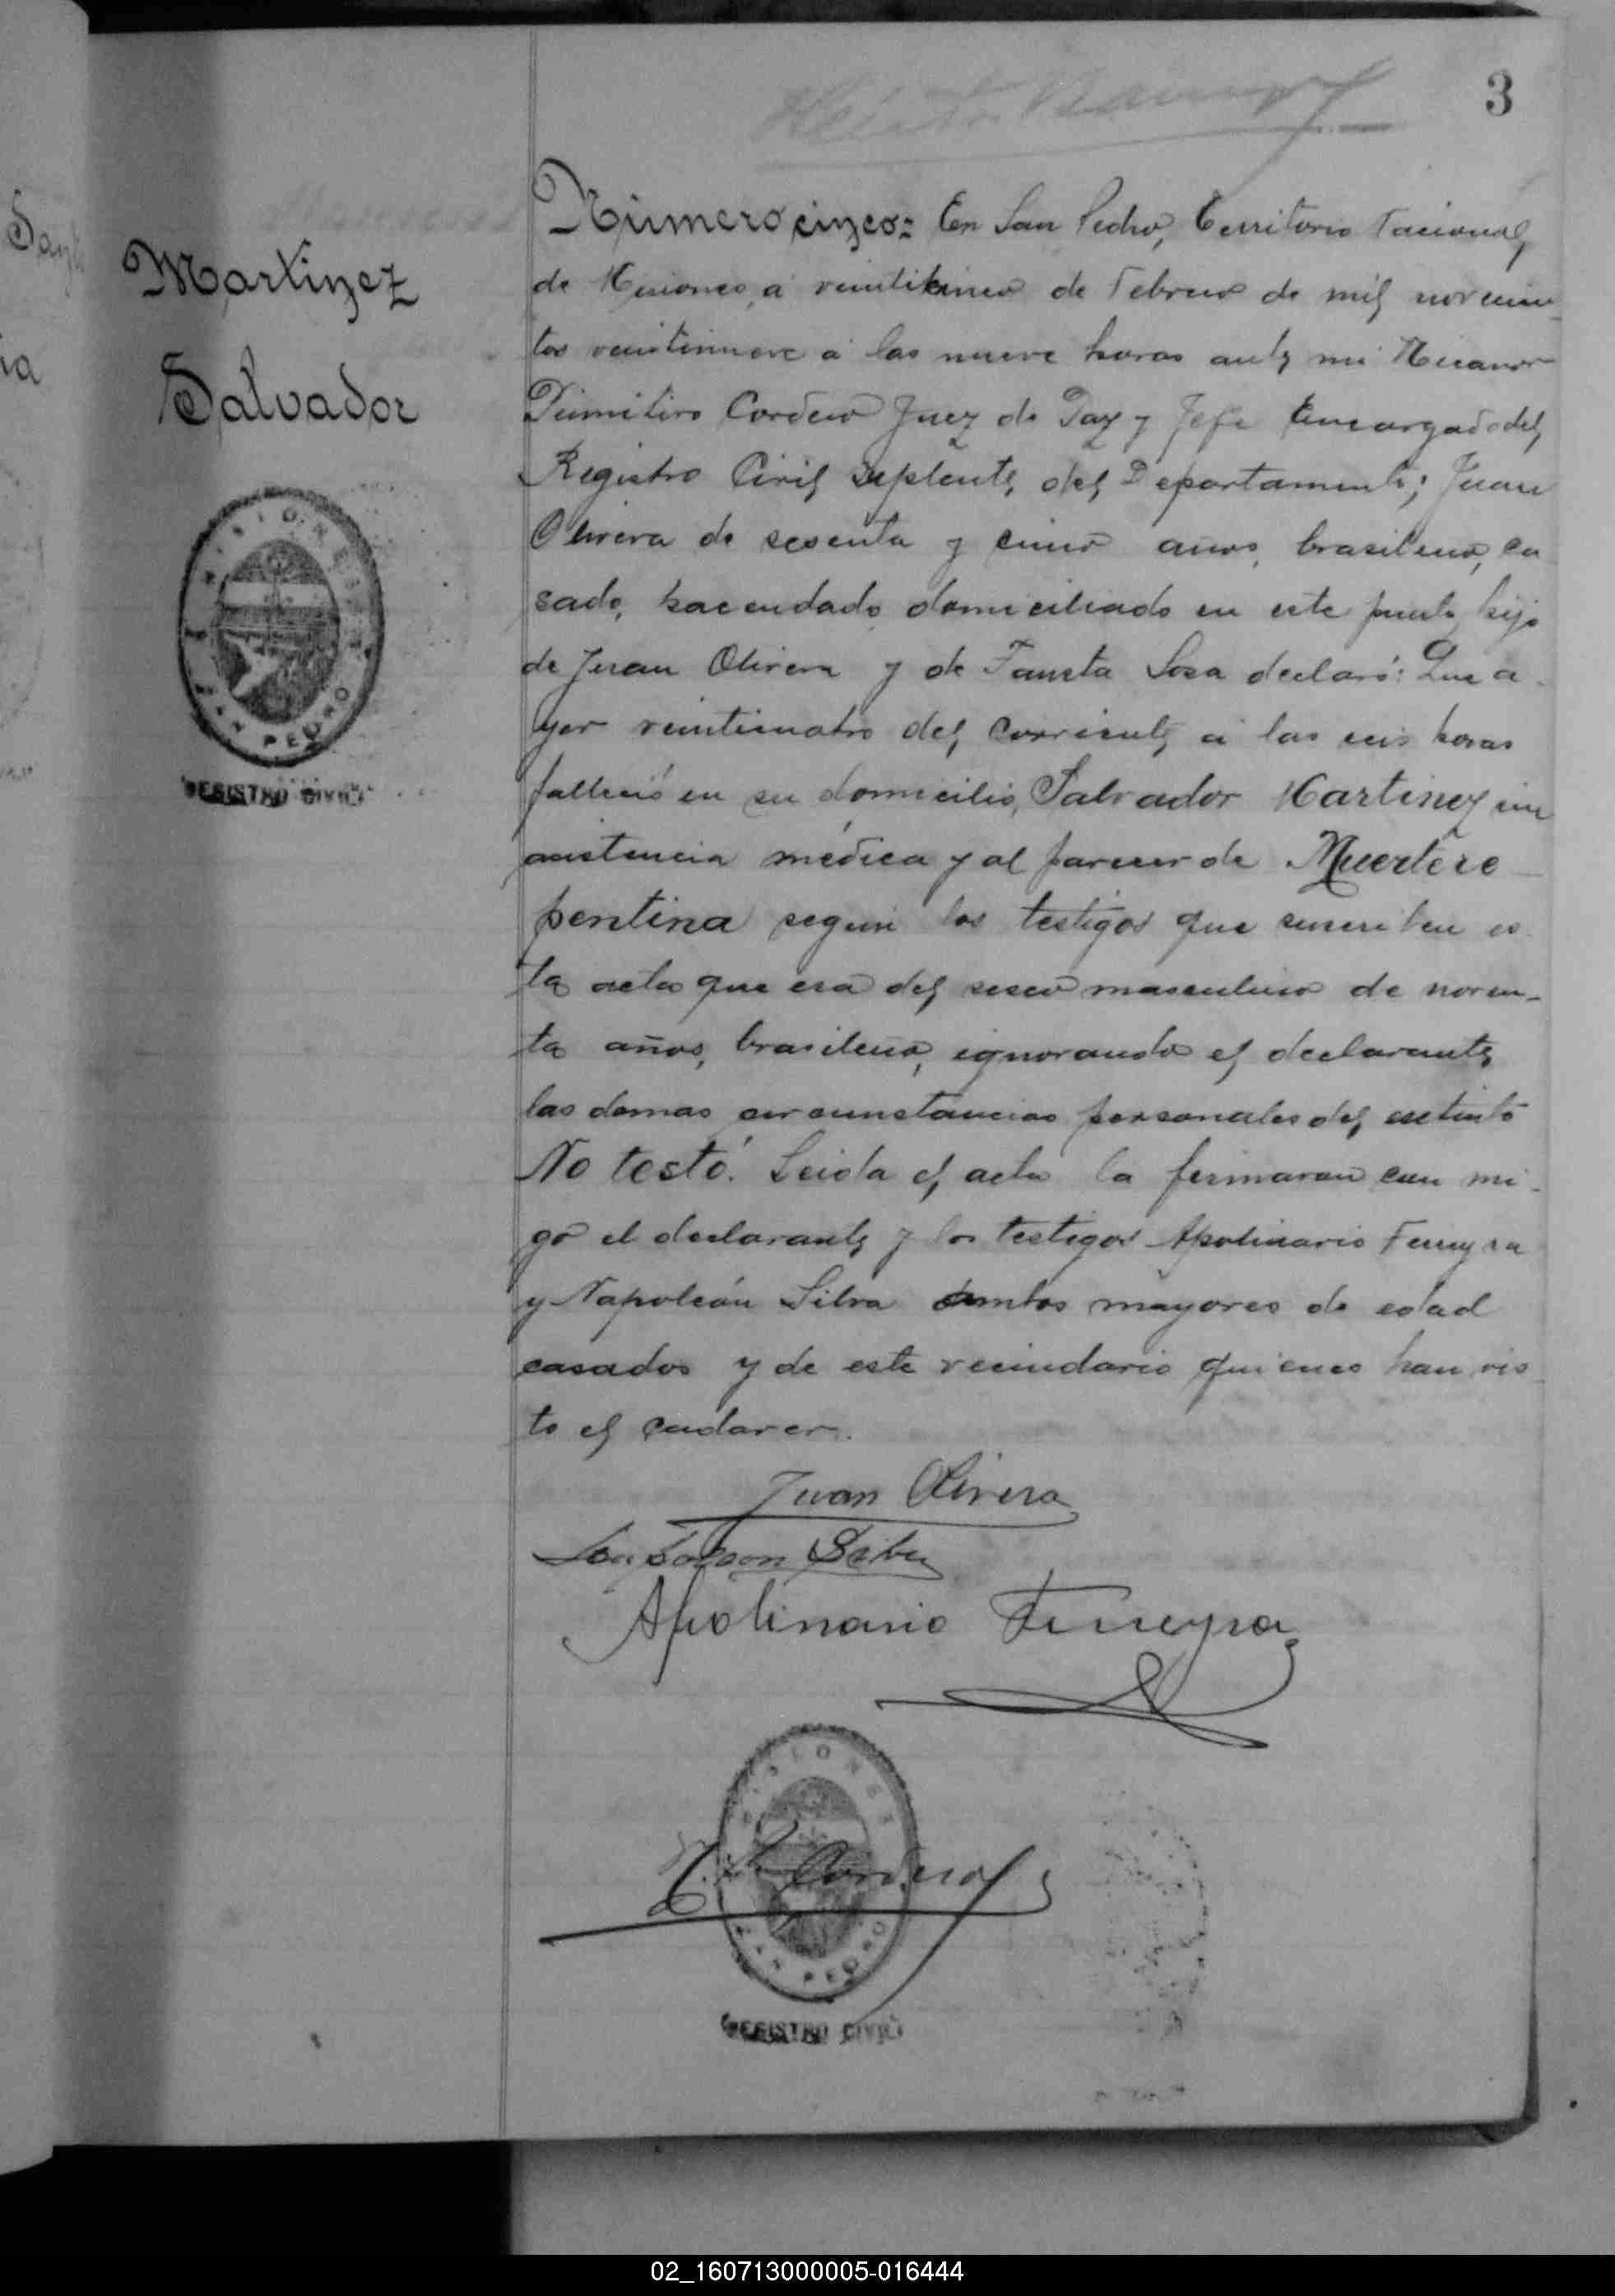 3
Martinez
Salvador
MISIONES
SAN PEDRO
REGISTRO CIVIL
Número cinco: En San Pedro, Territorio Nacional
de Misiones, a veinticinco de Febrero de mil novecien
tos veintinueve á las nueve horas ante mi Nicanor
Primitivo Cordero Juez de Paz y Jefe Encargado del
Registro Civil Suplente del Departamento; Juan
Olivera de sesenta y cinco años, brasileno, ca
sado, hacendado domiciliado en este punto, hijo
de Juan Olivera y de Fausta Sosa declaró: Que a
yer veinticuatro del corriente á las seis horas
falleció en su domicilio, Salvador Martinez sin
asistencia médica y al parecer de Muerte re
pentina segun los testigos que suscriben es
ta acta que era del sexo masculino de noven-
ta años, brasileno, ignorando el declarante
las demas circunstancias personales del extinto
No testó. Leida el acta la firmaron con mi
go el declarante y los testigos Apolinario Ferreyra
y Napoleón Silva ambos mayores de edad
casados y de este vecindario quienes han vis
to el cadaver.
Juan Olivera
Apolinario Ferreyra
Cordero
MISIONES
SAN PEDRO
REGISTRO CIVIL
02_160713000005-016444